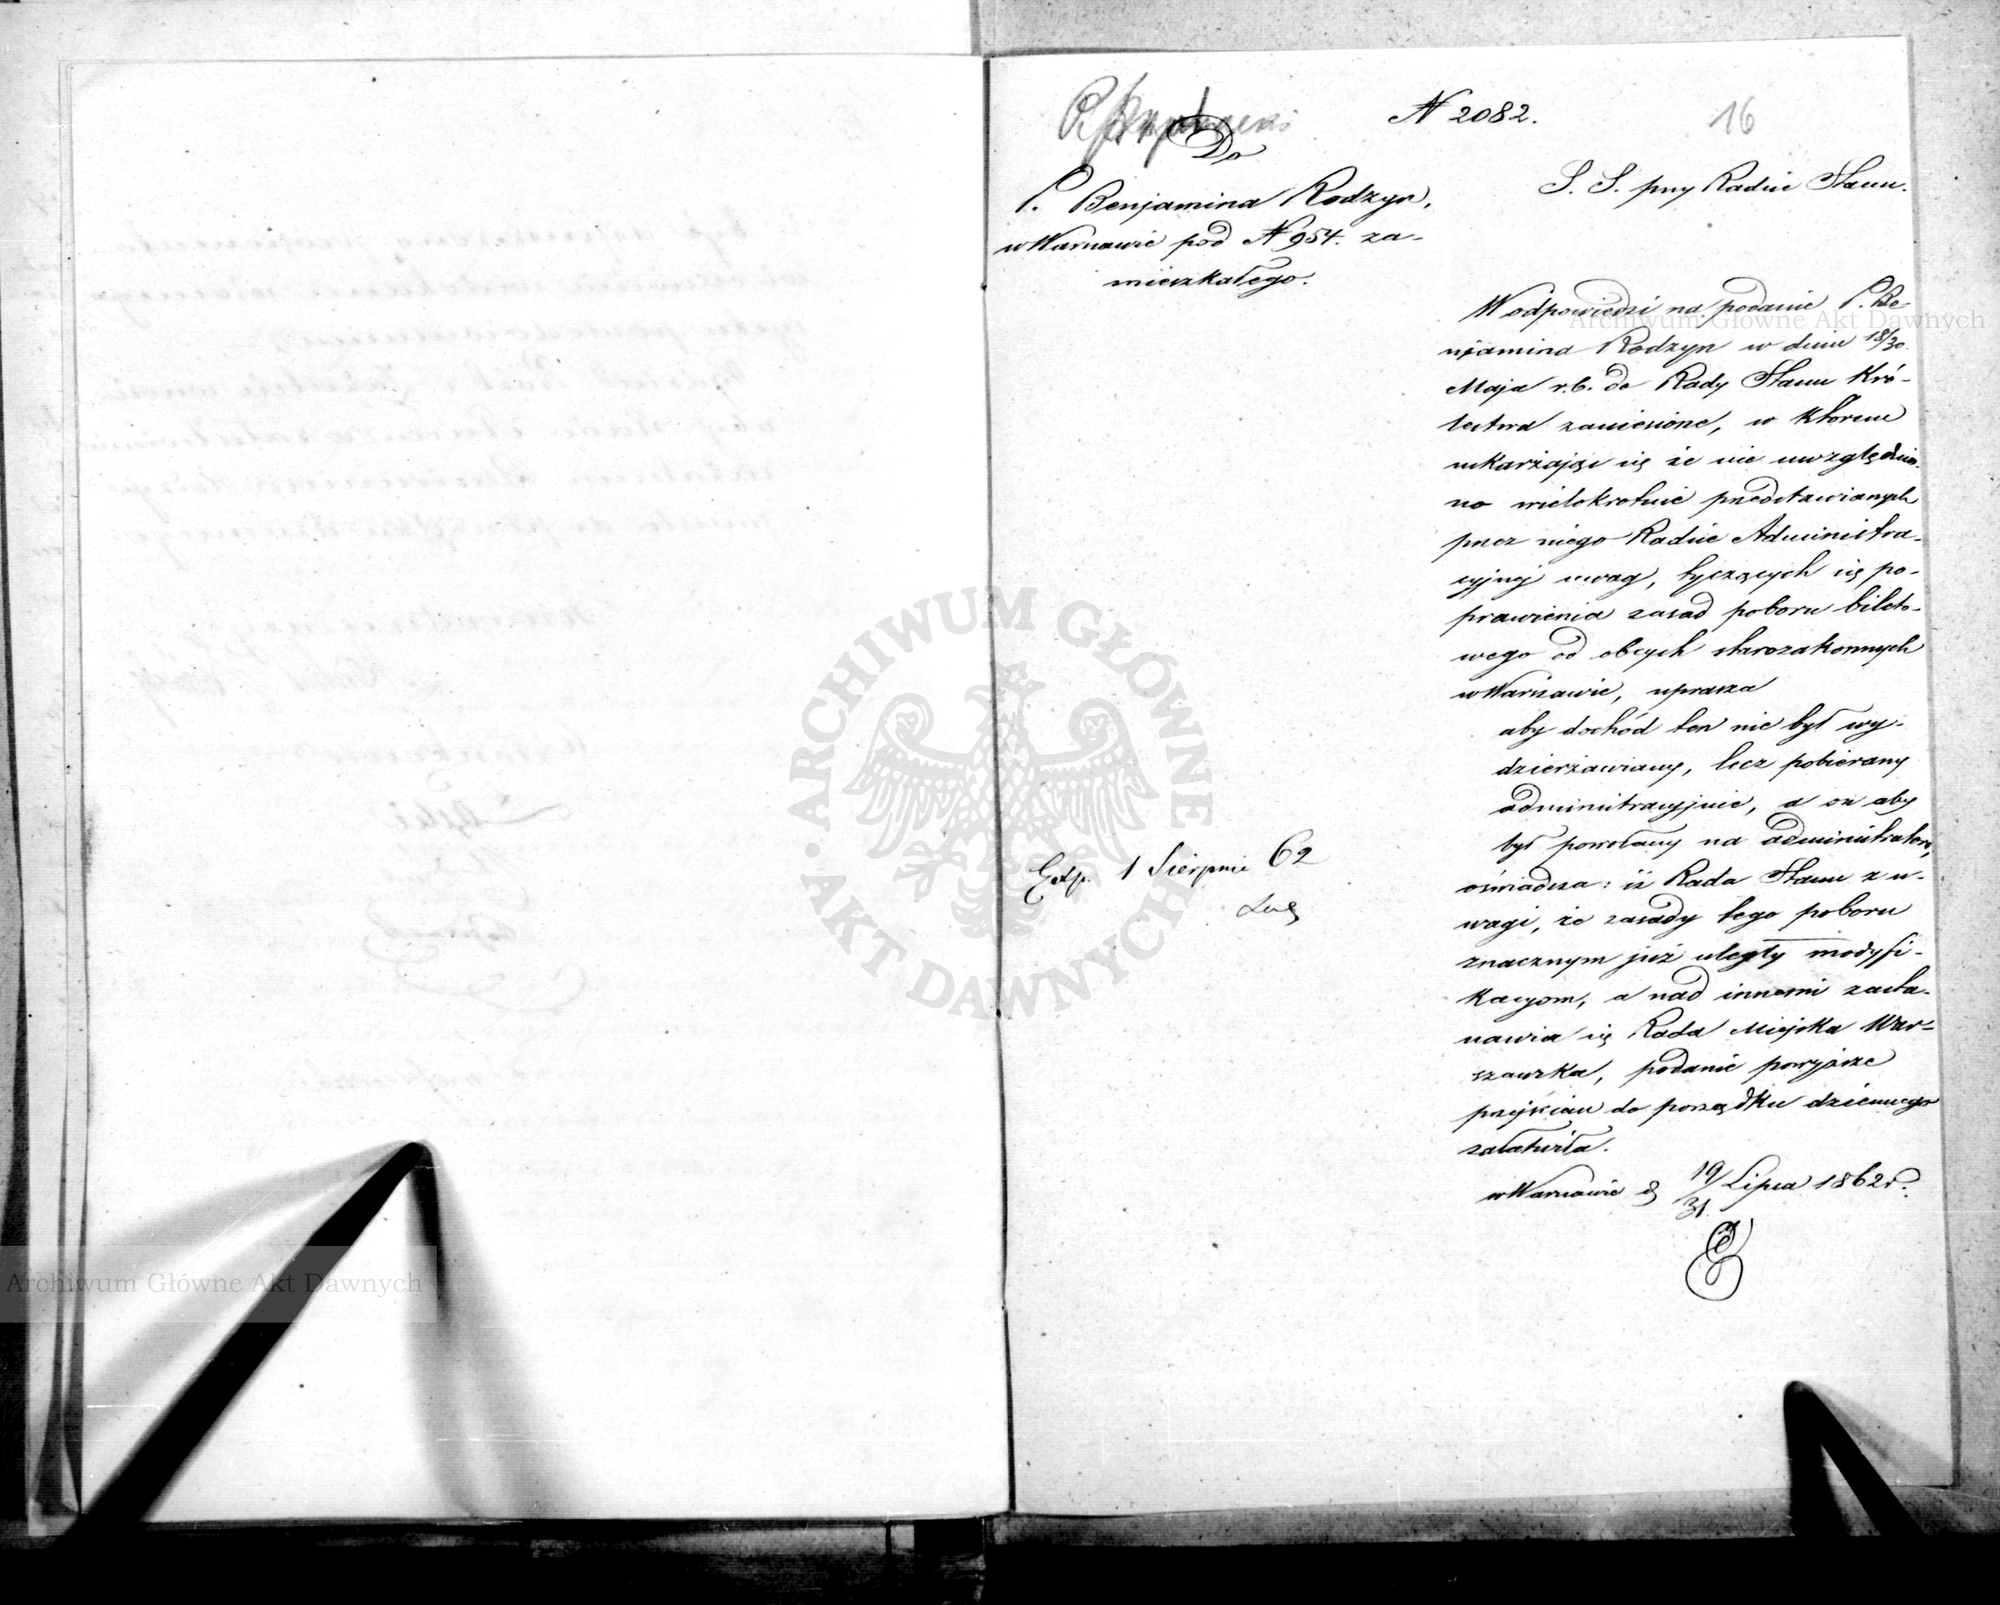 N 2082.
16
Do
P. Benjamina Rodzyn,
w Warszawie pod N 954. za-
mieszkałego.
S. S. przy Radzie Stanu.
W odpowiedzi na podanie P. Be-
njamina Rodzyn w dniu 18/30
Maja r.b. do Rady Stanu Kró-
lestwa zaniesione, w którem
uskarżając się że nie uwzględnio-
no wielokrotnie przedstawianych
przez niego Radzie Administra-
cyjnej uwag, tyczących się po-
prawienia zasad poboru bileto-
wego od obcych starozakonnych
w Warszawie, uprasza
aby dochód ten nie był wy-
dzierżawiany, lecz pobierany
administracyjnie, a on aby
był powołany na administratora,
oświadcza: iż Rada Stanu z u-
wagi, że zasady tego poboru
znacznym już uległy modyfi-
kacyom, a nad innemi zasta-
nawia się Rada Miejska War-
szawska, podanie powyższe
przejściem do porządku dziennego
załatwiła.
w Warszawie d 19/31 Lipca 1862 r.
Exp. 1 Sierpnia 62
Archiwum Główne Akt Dawnych
Archiwum Główne Akt Dawnych
ARCHIWUM GŁÓWNE
AKT DAWNYCH